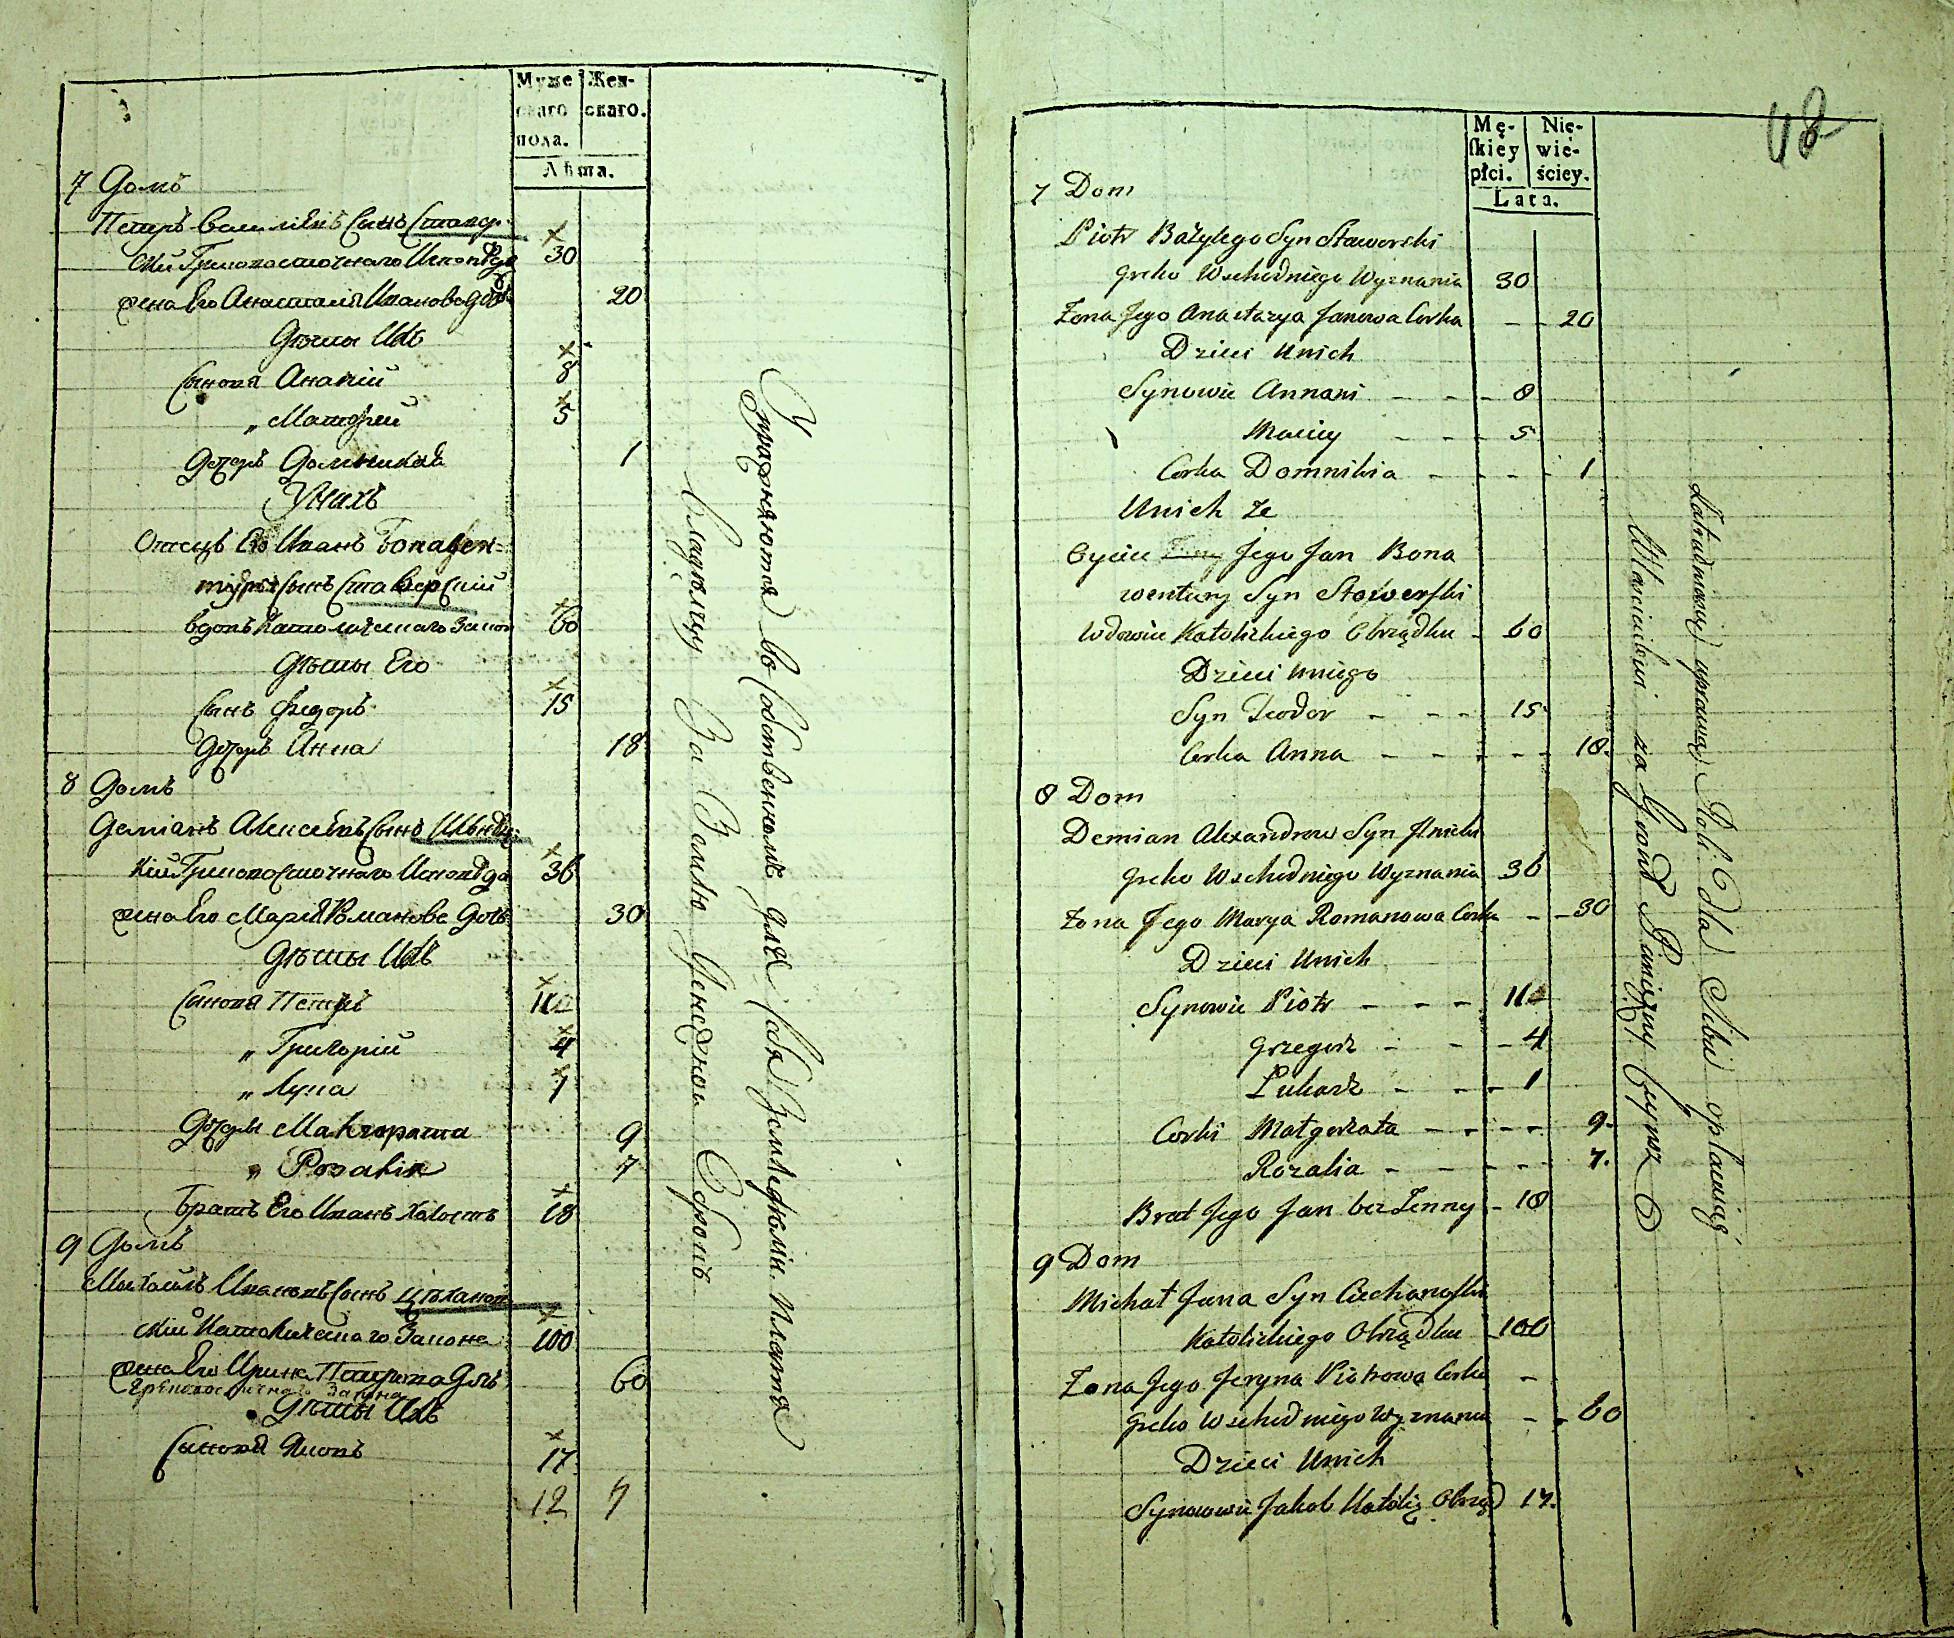 Муже
скаго
пола.
Жен-
скаго.
Лѣта.
7 Домъ
Петръ Василіевъ Сынъ Ставер
скій Грековосточнаго Исповѣда 30
жена Его Анастасія Иванова дочь 20
Дѣти Ихъ
Сыновя Ананій 8
„ Матфей 5
Дочерь Домникія 1
У нихъ
Отецъ Его Иванъ Бонавен-
туры Сынъ Ставерскій
вдовъ Католическаго Закон 60
Дѣти Его
Сынъ Федоръ 15
Дочерь Анна 18
8 Домъ
Деміанъ Алексеевъ Сынъ
кій Грековосточнаго Исповѣда 36
жена Его Марія Романова Дочь 30
Дѣти Ихъ
Сыновя Петръ
„ Григорій 4
„ Лука 1
Дочери Маргарата 9
„ Розалія 7
Братъ Его Иванъ Холостъ 18
9 Домъ
Михаилъ Ивановъ Сынъ Цѣханов
скій Католическаго Закона 100
жена Его Ирина Петрова Дочь 60
Грековосточнаго Закона
Дѣти Ихъ
Сыновя Яковъ 17
12 7
Упражняются во собственномъ для себя Земледѣліи. Платя
Владѣльцу За Землю Денежной Оброкъ
48
Mę-
ſkiey
płci.
Nie-
wie-
ściey.
Lata.
7 Dom
Piotr Bazylego Syn Stawerski
Greko Wschodniego Wyznania 30
Zona Jego Anastazya Janowa Corka - - 20
Dzieci Unich
Synowie Annani - - - 8
Maciey - - - 5
Corka Domnikia - - - - 1
Unich że
Oyciec Jego Jan Bona
wentury Syn Stawerſki
Wdowiec Katolickiego Obrządku - 60
Dzieci Uniego
Syn Teodor - - - 15
Corka Anna - - - - - 18.
8 Dom
Demian Alexandrow Syn
Greko Wschodniego Wyznania 36
Zona Jego Marya Romanowa Corka - - 30
Dzieci Unich
Synowie Piotr - - -
Grzegorz - - - 4
Lukasz - - - - 1
Corki Małgorzata - - - - 9.
Rozalia - - - - - 7.
Brat Jego Jan bez Zenny - 18
9 Dom
Michał Jana Syn Ciechanoſki
Katolickiego Obrządku 100
Zona Jego Jeryna Piotrowa Corka -
Greko Wschodniego Wyznania - - 60
Dzieci Unich
Synowie Jakob Katolic Obrząd 17.
Zatrudniaią uprawą Roli Dla Siebie opłacaiąc
Właścicielowi za Grond Pienięzny Czynsz